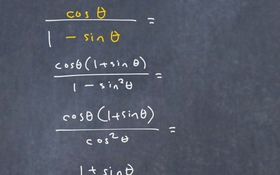 cos θ
1 - sin θ =
cosθ (1+sinθ)
1 - sin²θ =
cosθ (1+sinθ)
cos²θ =
1 + sin θ